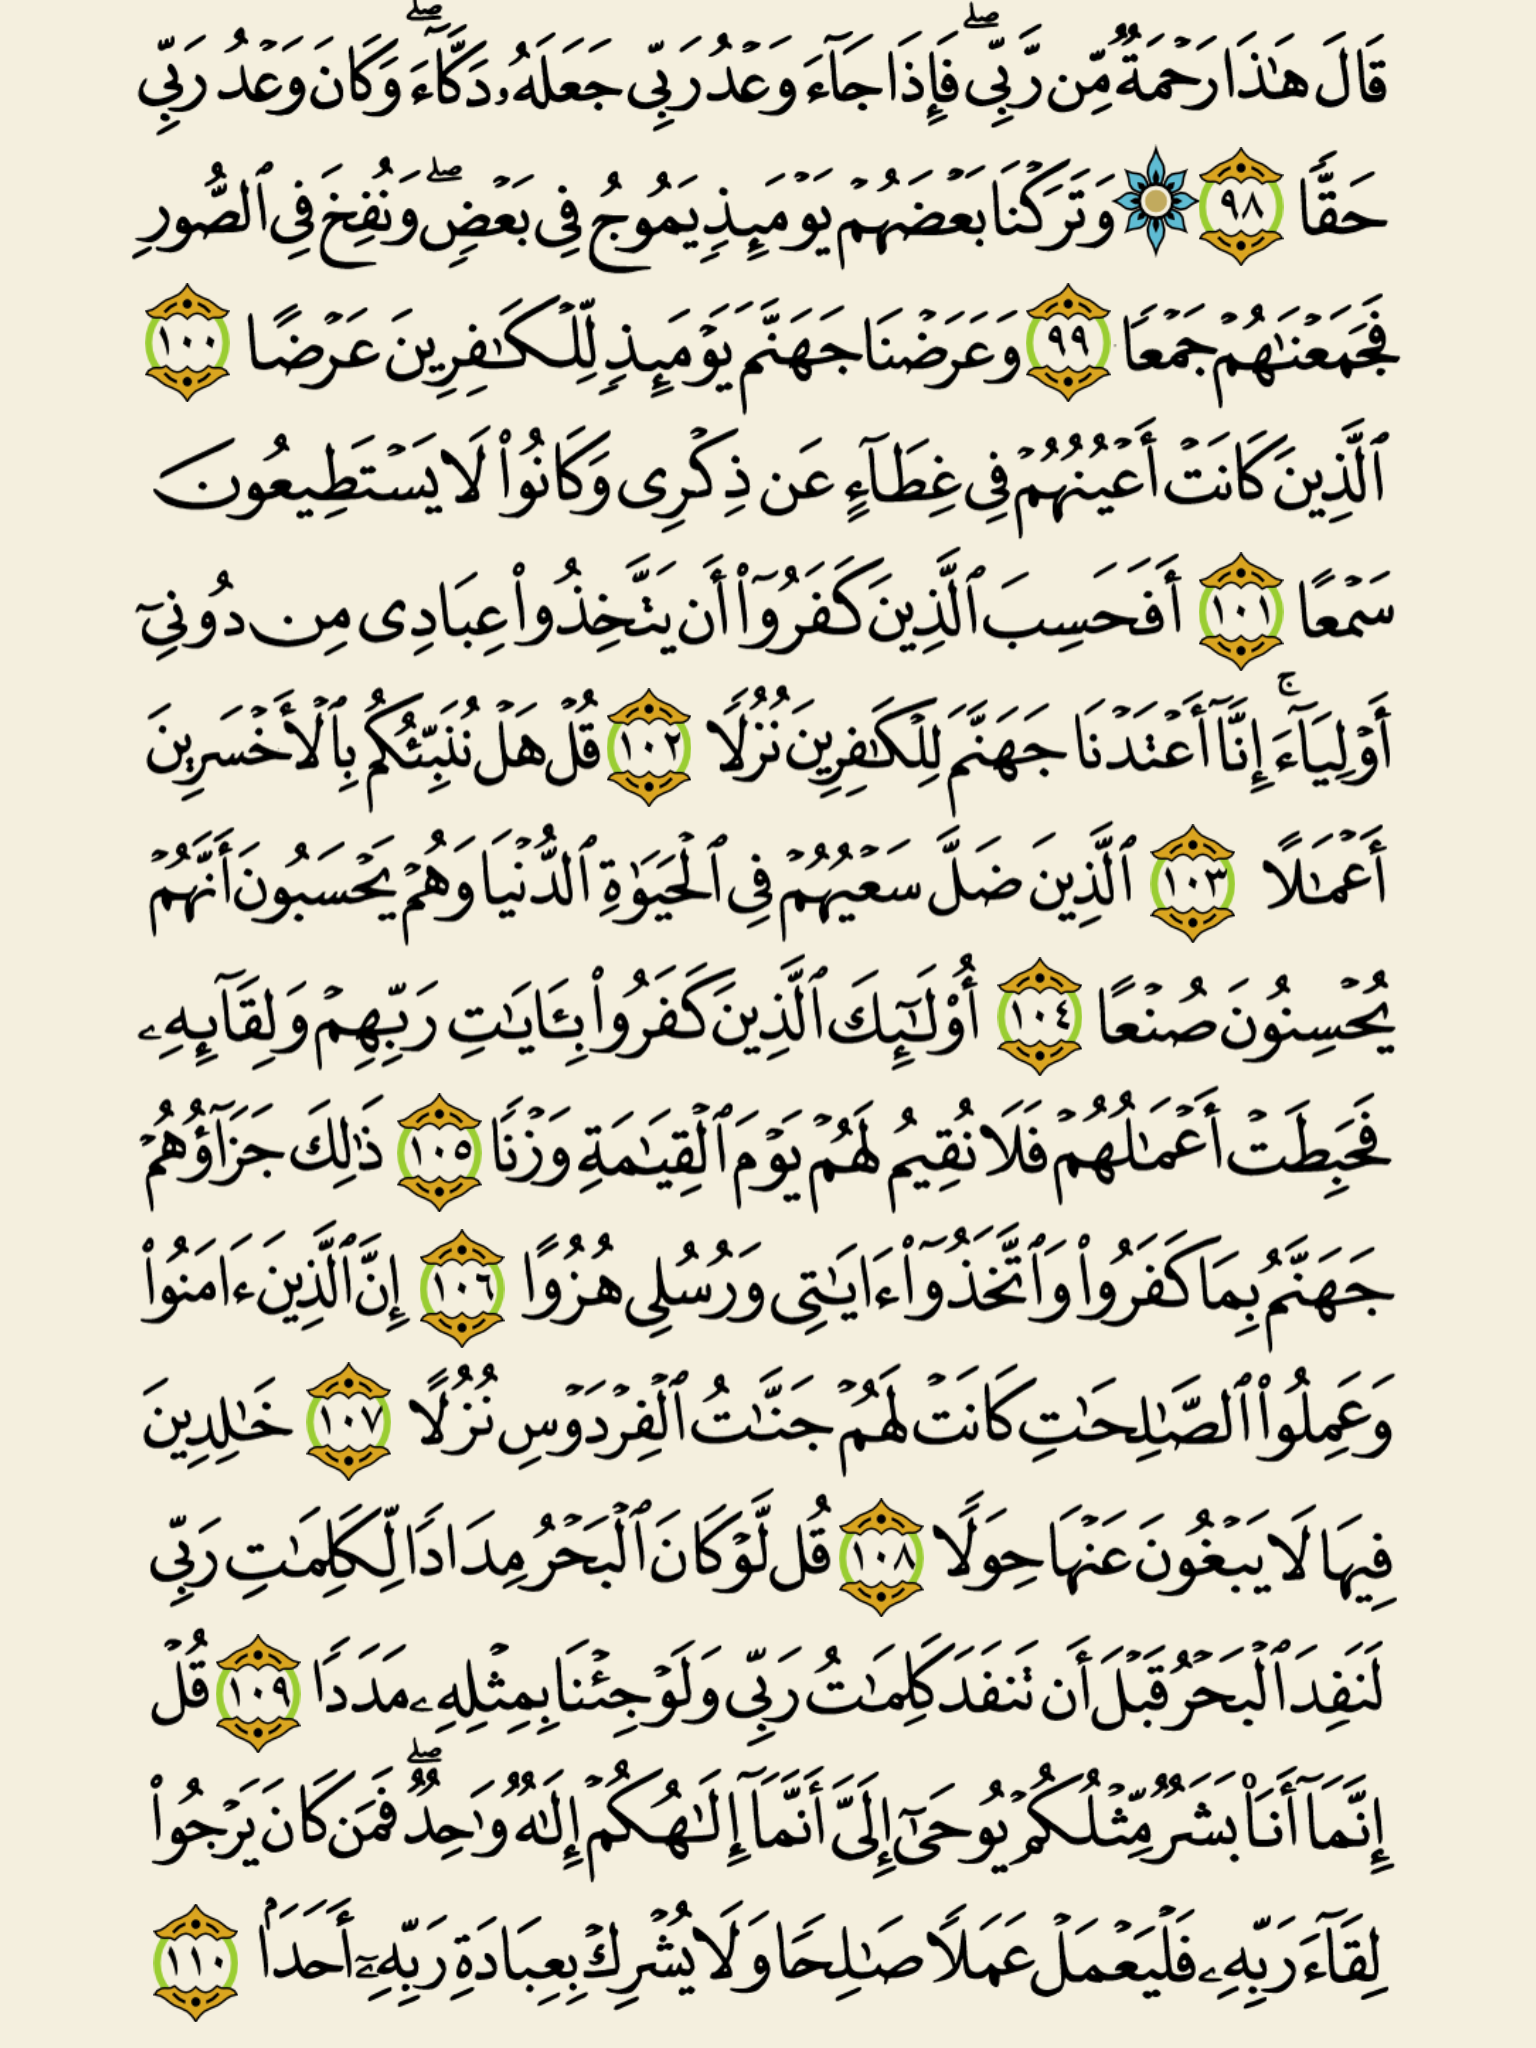 قَالَ هَٰذَا رَحْمَةٌ مِّن رَّبِّى ۖ فَإِذَا جَآءَ وَعْدُ رَبِّى جَعَلَهُۥ دَكَّآءَ ۖ وَكَانَ وَعْدُ رَبِّى
حَقًّا ٩٨ وَتَرَكْنَا بَعْضَهُمْ يَوْمَئِذٍ يَمُوجُ فِى بَعْضٍ ۖ وَنُفِخَ فِى ٱلصُّورِ
فَجَمَعْنَٰهُمْ جَمْعًا ٩٩ وَعَرَضْنَا جَهَنَّمَ يَوْمَئِذٍ لِّلْكَٰفِرِينَ عَرْضًا ١٠٠
ٱلَّذِينَ كَانَتْ أَعْيُنُهُمْ فِى غِطَآءٍ عَن ذِكْرِى وَكَانُوا۟ لَا يَسْتَطِيعُونَ
سَمْعًا ١٠١ أَفَحَسِبَ ٱلَّذِينَ كَفَرُوٓا۟ أَن يَتَّخِذُوا۟ عِبَادِى مِن دُونِىٓ
أَوْلِيَآءَ ۚ إِنَّآ أَعْتَدْنَا جَهَنَّمَ لِلْكَٰفِرِينَ نُزُلًا ١٠٢ قُلْ هَلْ نُنَبِّئُكُم بِٱلْأَخْسَرِينَ
أَعْمَٰلًا ١٠٣ ٱلَّذِينَ ضَلَّ سَعْيُهُمْ فِى ٱلْحَيَوٰةِ ٱلدُّنْيَا وَهُمْ يَحْسَبُونَ أَنَّهُمْ
يُحْسِنُونَ صُنْعًا ١٠٤ أُو۟لَٰٓئِكَ ٱلَّذِينَ كَفَرُوا۟ بِـَٔايَٰتِ رَبِّهِمْ وَلِقَآئِهِۦ
فَحَبِطَتْ أَعْمَٰلُهُمْ فَلَا نُقِيمُ لَهُمْ يَوْمَ ٱلْقِيَٰمَةِ وَزْنًا ١٠٥ ذَٰلِكَ جَزَآؤُهُمْ
جَهَنَّمُ بِمَا كَفَرُوا۟ وَٱتَّخَذُوٓا۟ ءَايَٰتِى وَرُسُلِى هُزُوًا ١٠٦ إِنَّ ٱلَّذِينَ ءَامَنُوا۟
وَعَمِلُوا۟ ٱلصَّٰلِحَٰتِ كَانَتْ لَهُمْ جَنَّٰتُ ٱلْفِرْدَوْسِ نُزُلًا ١٠٧ خَٰلِدِينَ
فِيهَا لَا يَبْغُونَ عَنْهَا حِوَلًا ١٠٨ قُل لَّوْ كَانَ ٱلْبَحْرُ مِدَادًا لِّكَلِمَٰتِ رَبِّى
لَنَفِدَ ٱلْبَحْرُ قَبْلَ أَن تَنفَدَ كَلِمَٰتُ رَبِّى وَلَوْ جِئْنَا بِمِثْلِهِۦ مَدَدًا ١٠٩ قُلْ
إِنَّمَآ أَنَا۠ بَشَرٌ مِّثْلُكُمْ يُوحَىٰٓ إِلَىَّ أَنَّمَآ إِلَٰهُكُمْ إِلَٰهٌ وَٰحِدٌ ۖ فَمَن كَانَ يَرْجُوا۟
لِقَآءَ رَبِّهِۦ فَلْيَعْمَلْ عَمَلًا صَٰلِحًا وَلَا يُشْرِكْ بِعِبَادَةِ رَبِّهِۦٓ أَحَدَۢا ١١٠